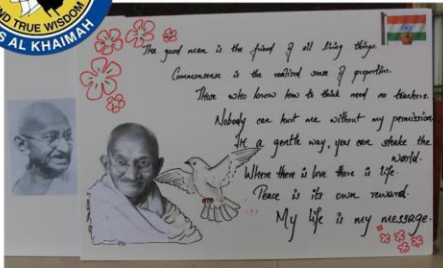 ND TRUE WISDOM
S AL KHAIMAH
The good man is the friend of all living things.
Commonsense is the realised sense of proportion.
Those who know how to think need no teachers.
Nobody can hurt me without my permission
In a gentle way, you can shake the
world.
Where there is love there is life.
Peace is its own reward.
My life is my message.